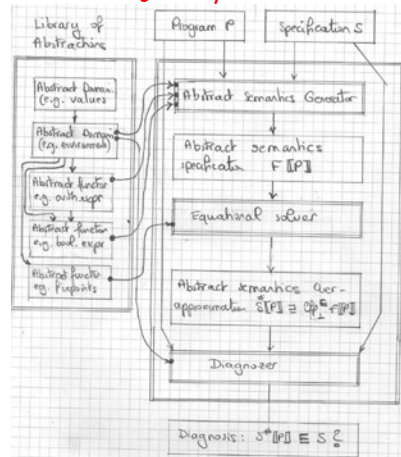 Library of
Abstractions
Program P
Specification S
Abstract Domain
(e.g. values
Abstract Domain
(e.g. environment
Abstract functor
e.g. arith. expr
Abstract functor
e.g. bool. expr
Abstract functor
eg. fixpoints
Abstract Semantics Generator
Abstract semantics
specification F⟦P⟧
Equational solver
Abstract semantics over-
approximation S̄⟦P⟧ ⊒ lfp⊑⊥ F⟦P⟧
Diagnozer
Diagnosis: S#⟦P⟧ ⊑ S ?